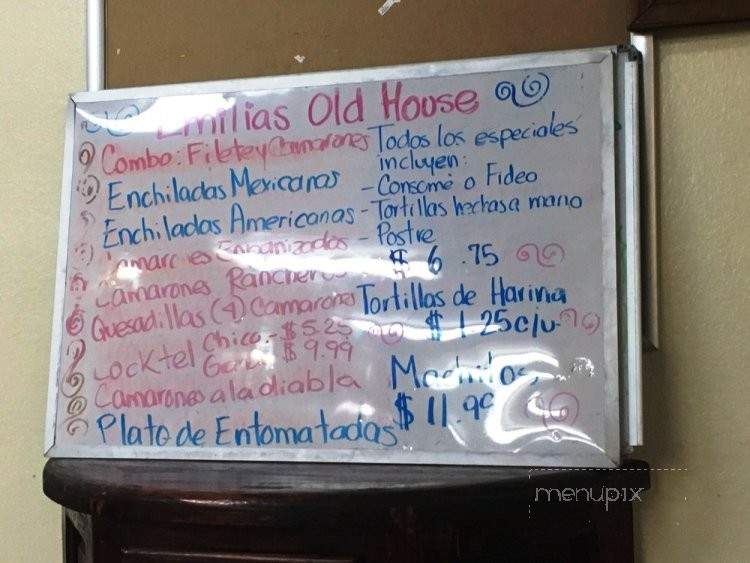 Emilias Old House
Combo: Filete y Camarones
Enchiladas Mexicanas
Enchiladas Americanas
Camarones Enpanizados
Camarones Rancheros
Quesadillas (4) Camarones
Cocktel Chico - $5.25
$9.99
Camarones a la diabla
Plato de Entomatadas
Todos los especiales
incluyen:
- Consome o Fideo
- Tortillas hechas a mano
- Postre
$ 6.75
Tortillas de Harina
$ 1.25 c/u.
Machitos
$ 11.99
menupix